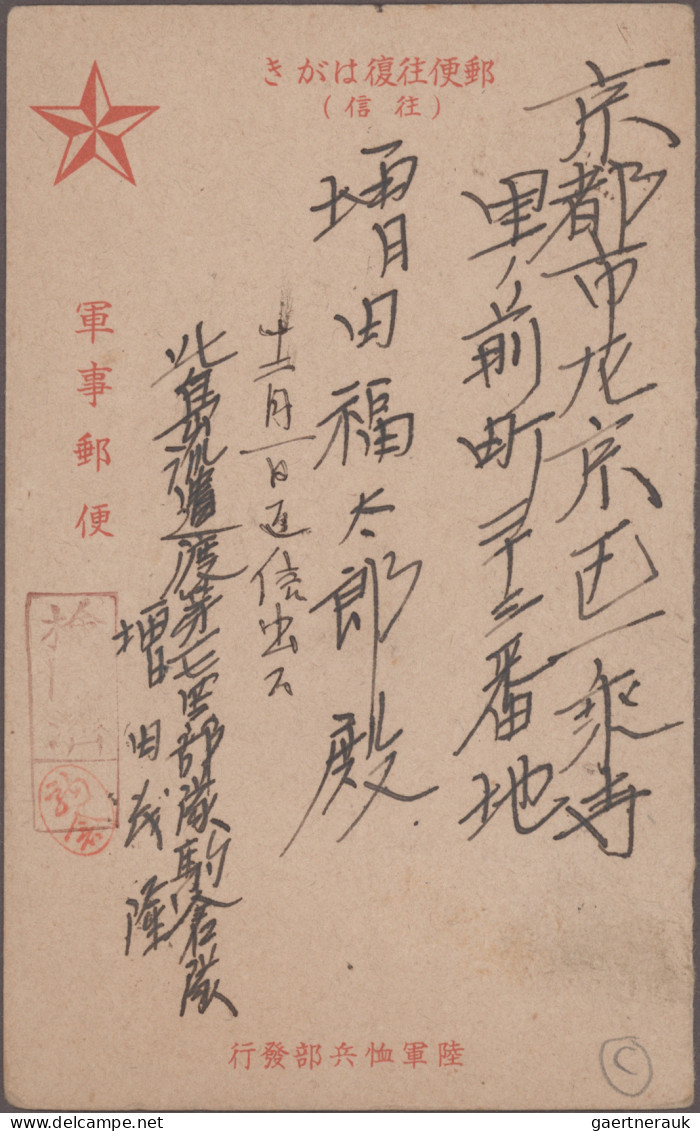 郵便往復はがき
(往信)
軍事郵便
京都市左京区一乘寺
里ノ前町三十三番地
増田福太郎殿
十二月一日返信出ス
北島派遣渡第 部隊駒倉隊
増田茂隆
検 済
駒倉
陸軍恤兵部發行
C
gaertnerauk